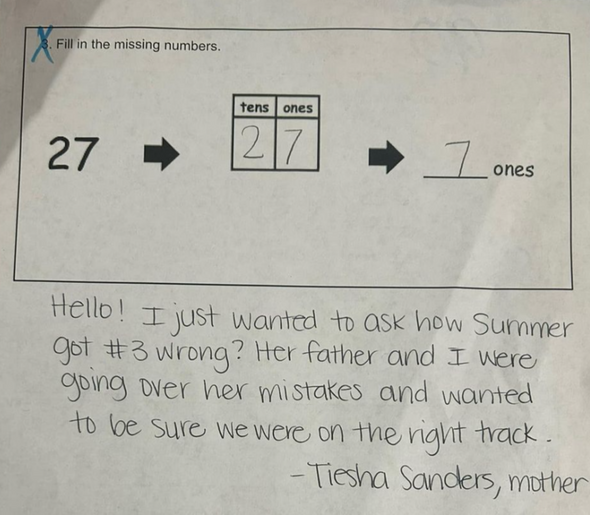 3. Fill in the missing numbers.
tens ones
27 2 7 7 ones
Hello! I just wanted to ask how Summer
got #3 wrong? Her father and I were
going over her mistakes and wanted
to be sure we were on the right track.
-Tiesha Sanders, mother